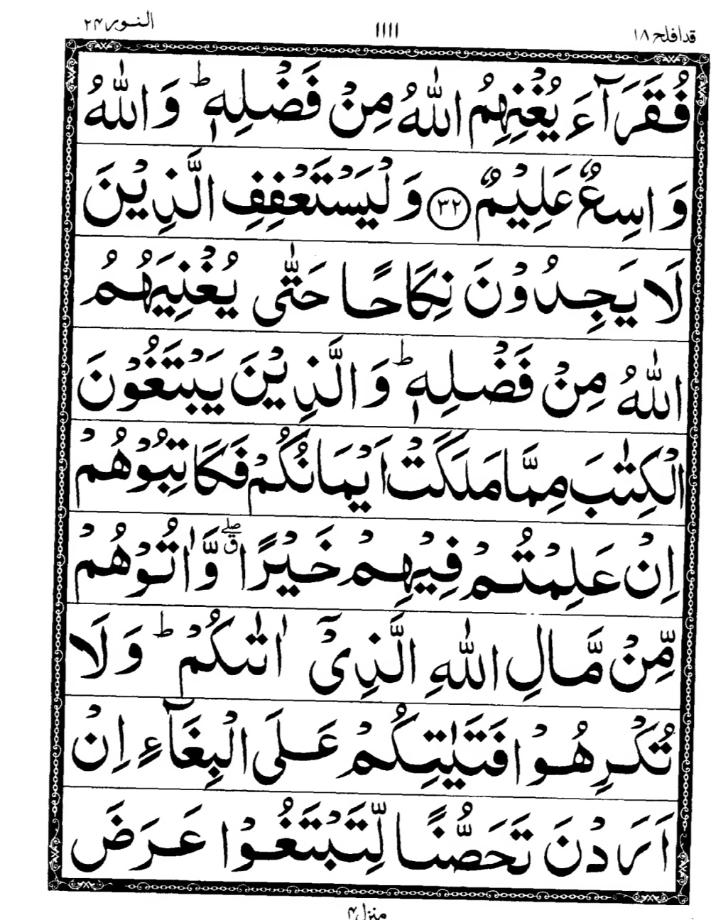 النور ٢٤ ١١١١ قد افلح ١٨
فُقَرَآءَ يُغْنِهِمُ اللّٰهُ مِنْ فَضْلِهٖ ؕ وَاللّٰهُ
وَاسِعٌ عَلِيْمٌ ﴿٣٢﴾ وَلْيَسْتَعْفِفِ الَّذِيْنَ
لَا يَجِدُوْنَ نِكَاحًا حَتّٰى يُغْنِيَهُمُ
اللّٰهُ مِنْ فَضْلِهٖ ؕ وَالَّذِيْنَ يَبْتَغُوْنَ
الْكِتٰبَ مِمَّا مَلَكَتْ اَيْمَانُكُمْ فَكَاتِبُوْهُمْ
اِنْ عَلِمْتُمْ فِيْهِمْ خَيْرًا ۖق وَّاٰتُوْهُمْ
مِّنْ مَّالِ اللّٰهِ الَّذِيْۤ اٰتٰىكُمْ ؕ وَلَا
تُكْرِهُوْا فَتَيٰتِكُمْ عَلَى الْبِغَآءِ اِنْ
اَرَدْنَ تَحَصُّنًا لِّتَبْتَغُوْا عَرَضَ
منزل ٤